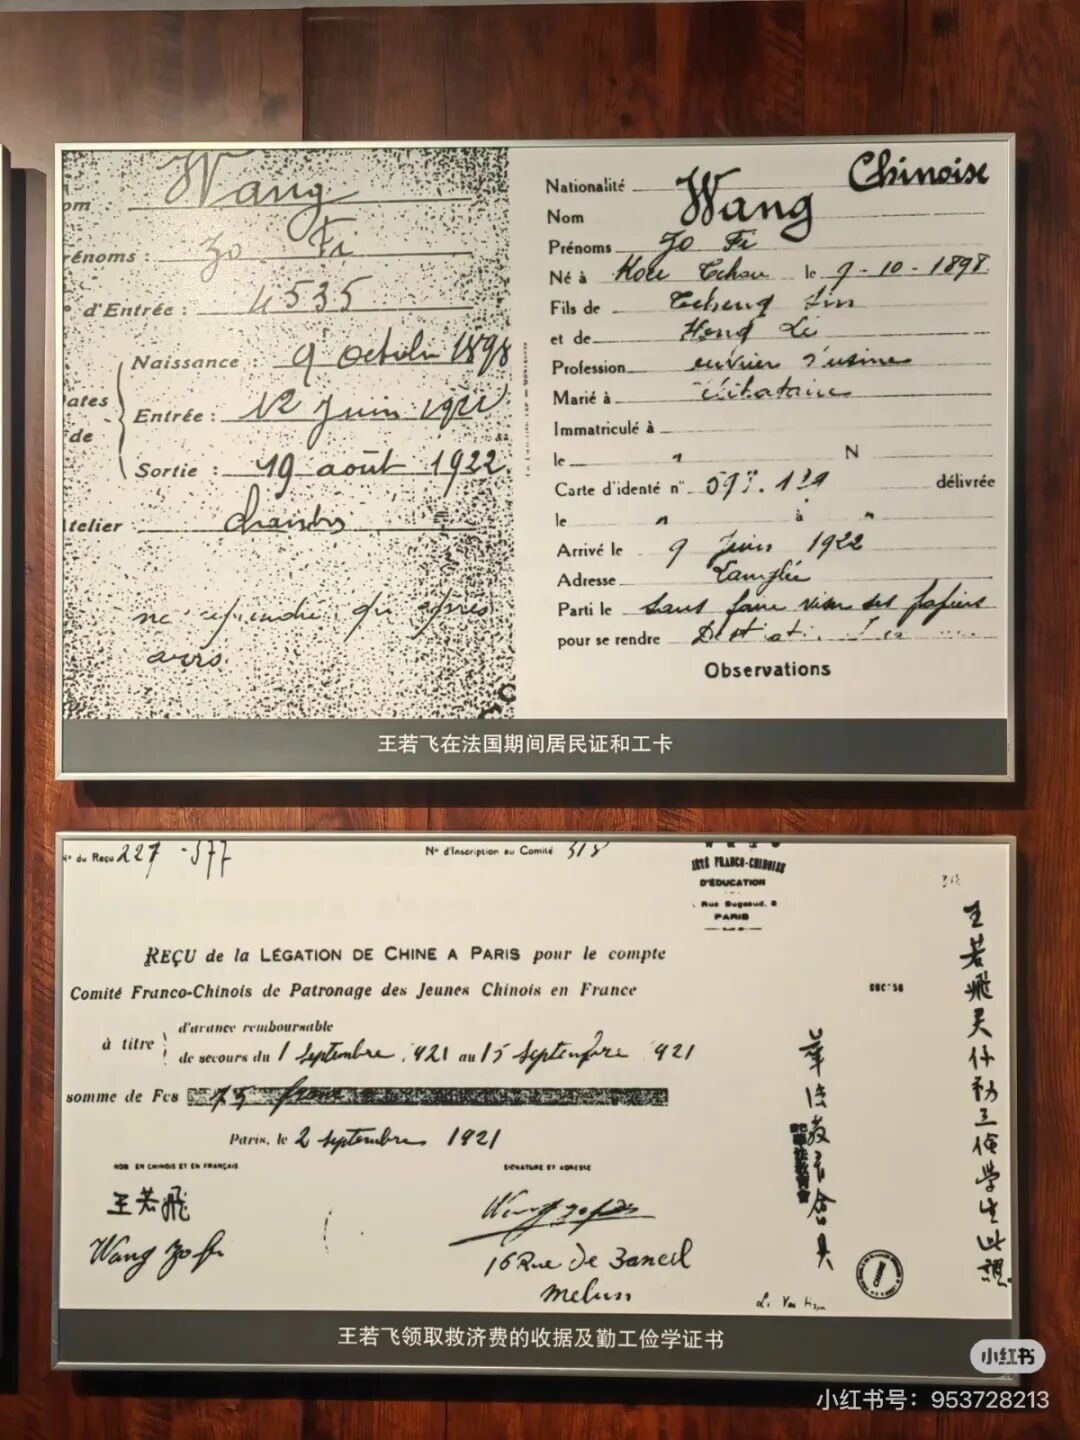 Wang
énoms : Zo Fi
d'Entrée : 4535
Naissance : 9 octobre 1898
ates de
Entrée : 12 Juin 192
Sortie : 19 août 1922
telier
qu'après
avis.
Nationalité Chinoise
Nom Wang
Prénoms Zo Fi
Né à Kouï Tchou le 9-10-1898
Fils de Tcheng Lin
et de Hong Li
Profession ouvrier d'usine
Marié à célibataire
Immatriculé à
le " N
Carte d'identé n° délivrée
le " à "
Arrivé le 9 Juin 1922
Adresse Langlée
Parti le sans faire viser ses papiers
pour se rendre
Observations
王若飞在法国期间居民证和工卡
N° du Reçu 227 -577
N° d'Inscription au Comité 318
IÉTÉ FRANCO-CHINOISE
D'ÉDUCATION
Rue Bugeaud, 8
PARIS
REÇU de la LÉGATION DE CHINE A PARIS pour le compte
Comité Franco-Chinois de Patronage des Jeunes Chinois en France
à titre
d'avance remboursable
de secours du 1 septembre 1921 au 15 septembre 1921
somme de Fcs 75 francs
Paris, le 2 septembre 1921
NOM EN CHINOIS ET EN FRANÇAIS
SIGNATURE ET ADRESSE
王若飛
Wang Zo fi
Wang Zo fi
16 Rue de
Melun
華法教育會具
王若飛君什勤工儉學生此證
王若飞领取救济费的收据及勤工俭学证书
小红书
小红书号：953728213